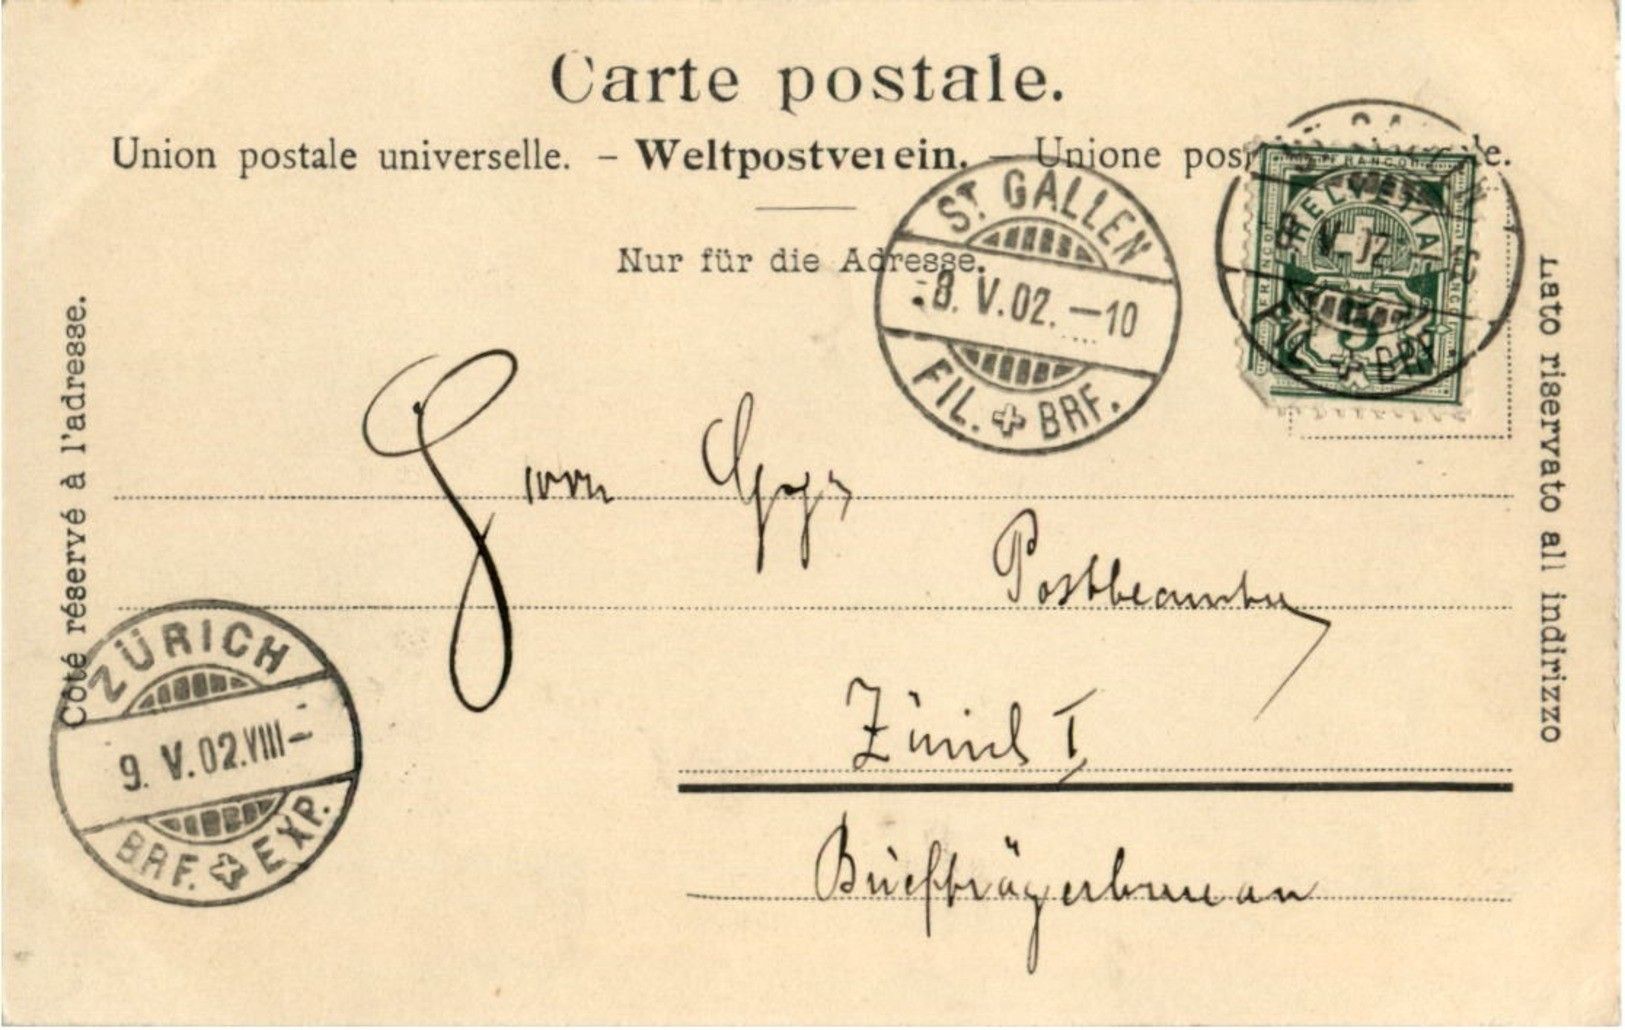 Carte postale.
Union postale universelle. – Weltpostverein. – Unione postale
Nur für die Adresse.
Côté réservé à l'adresse.
Lato riservato all indirizzo
ST. GALLEN
8. V. 02. –10
FIL. BRF.
FRANCO
HELVETIA
5
V. 02
FIL. BRF.
Herrn
Postbeamter
Zürich I
Briefträgerbureau
ZÜRICH
9. V. 02. VIII–
BRF. EXP.